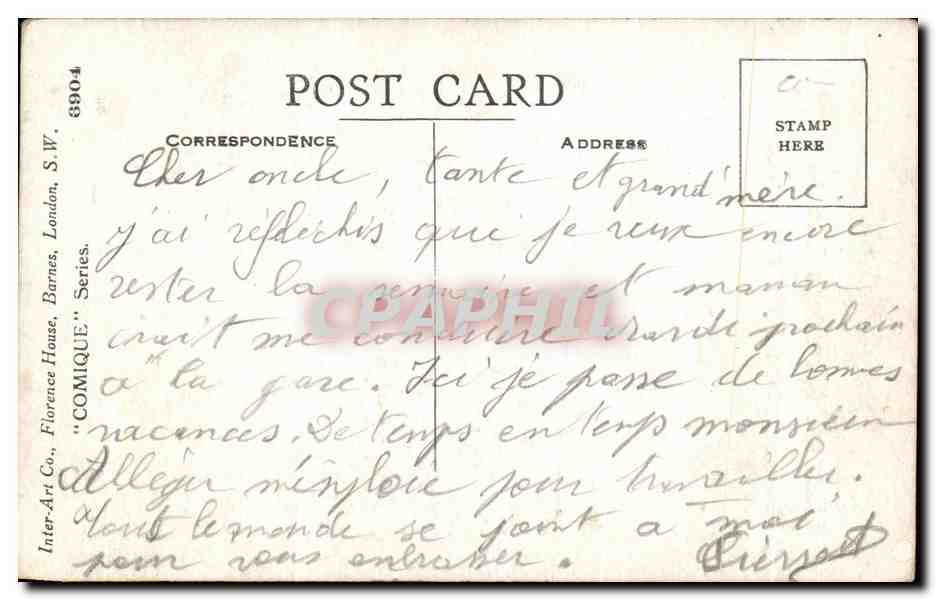 POST CARD
CORRESPONDENCE
ADDRESS
STAMP
HERE
Cher oncle, tante et grand'mère.
J'ai réfléchis que je veux encore
rester la semaine et maman
irait me conduire mardi prochain
à la gare. Ici je passe de bonnes
vacances. De temps en temps monsieur
Alléger m'emploie pour travailler.
Tout le monde se joint a moi
pour vous embrasser. Pierrot
Inter-Art Co., Florence House, Barnes, London, S.W.
"COMIQUE" Series.
6904
CPAPHIL